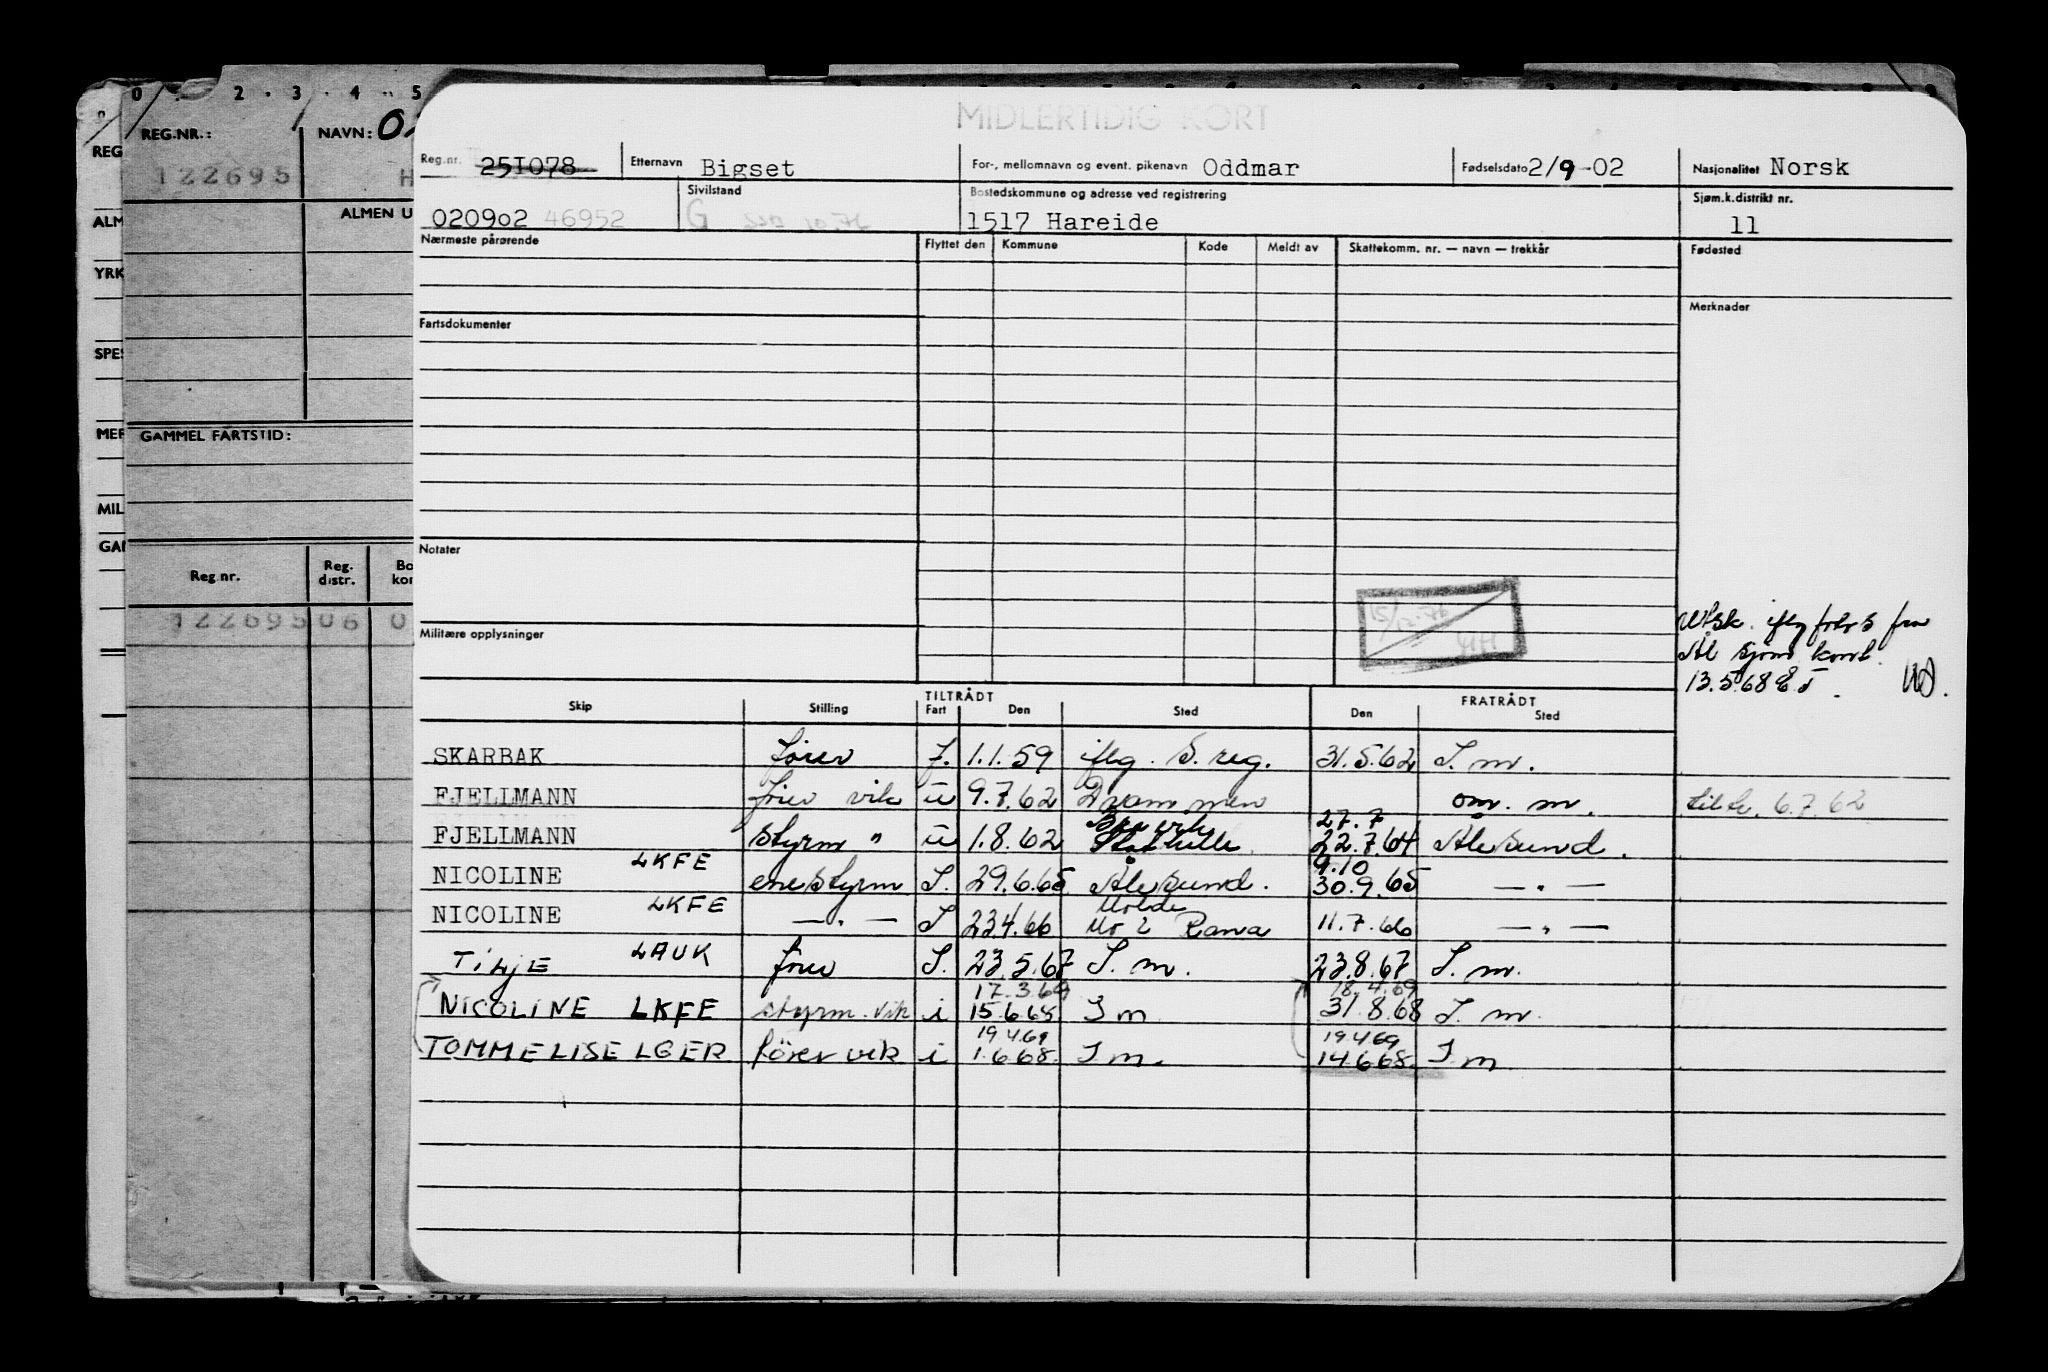 0 2 . 3 . 4 . 5
REG.NR.:
NAVN:
REG
122695
H
ALM
ALMEN U
YRK
SPES
MER
GAMMEL FARTSTID:
MIL
GAM
Reg.nr.
Reg. distr.
Bo kom
122695 06 0
MIDLERTIDIG KORT
Reg.nr. 251078
Etternavn Bigset
For-, mellomnavn og event. pikenavn Oddmar
Fødselsdato 2/9-02
Nasjonalitet Norsk
020902 46952
Sivilstand
G
Bostedskommune og adresse ved registrering
1517 Hareide
Sjøm.k.distrikt nr.
11
Nærmeste pårørende
Flyttet den
Kommune
Kode
Meldt av
Skattekomm. nr. — navn — trekkår
Fødested
Merknader
Fartsdokumenter
Notater
Militære opplysninger
15/12-76
Utsk. iflg
fra
Ål sjøm kont.
13.5.68
TILTRÅDT
FRATRÅDT
Skip Stilling Fart Den Sted Den Sted
SKARBAK fører f. 1.1.59 iflg. S. reg. 31.5.62 S. m.
FJELLMANN fører vik u 9.7.62 Drammen om. m. tiltr. 6.7.62
27.7
FJELLMANN styrm " u 1.8.62 22.7.64 Ålesund.
9.10
NICOLINE LKFE enestyrm S. 29.6.65 Ålesund. 30.9.65 — " —
Molde
NICOLINE LKFE — " — S 23.4.66 Mo i Rana 11.7.66 — " —
TILJE LAUK fører S. 23.5.67 S. m. 23.8.67 S. m.
17.3.69 18.4.69
NICOLINE LKFE styrm. vik i 15.6.68 S m 31.8.68 S. m.
19.4.69 19.4.69
TOMMELISE LGER fører vik i 1.6.68. S m. 14.6.68. S m